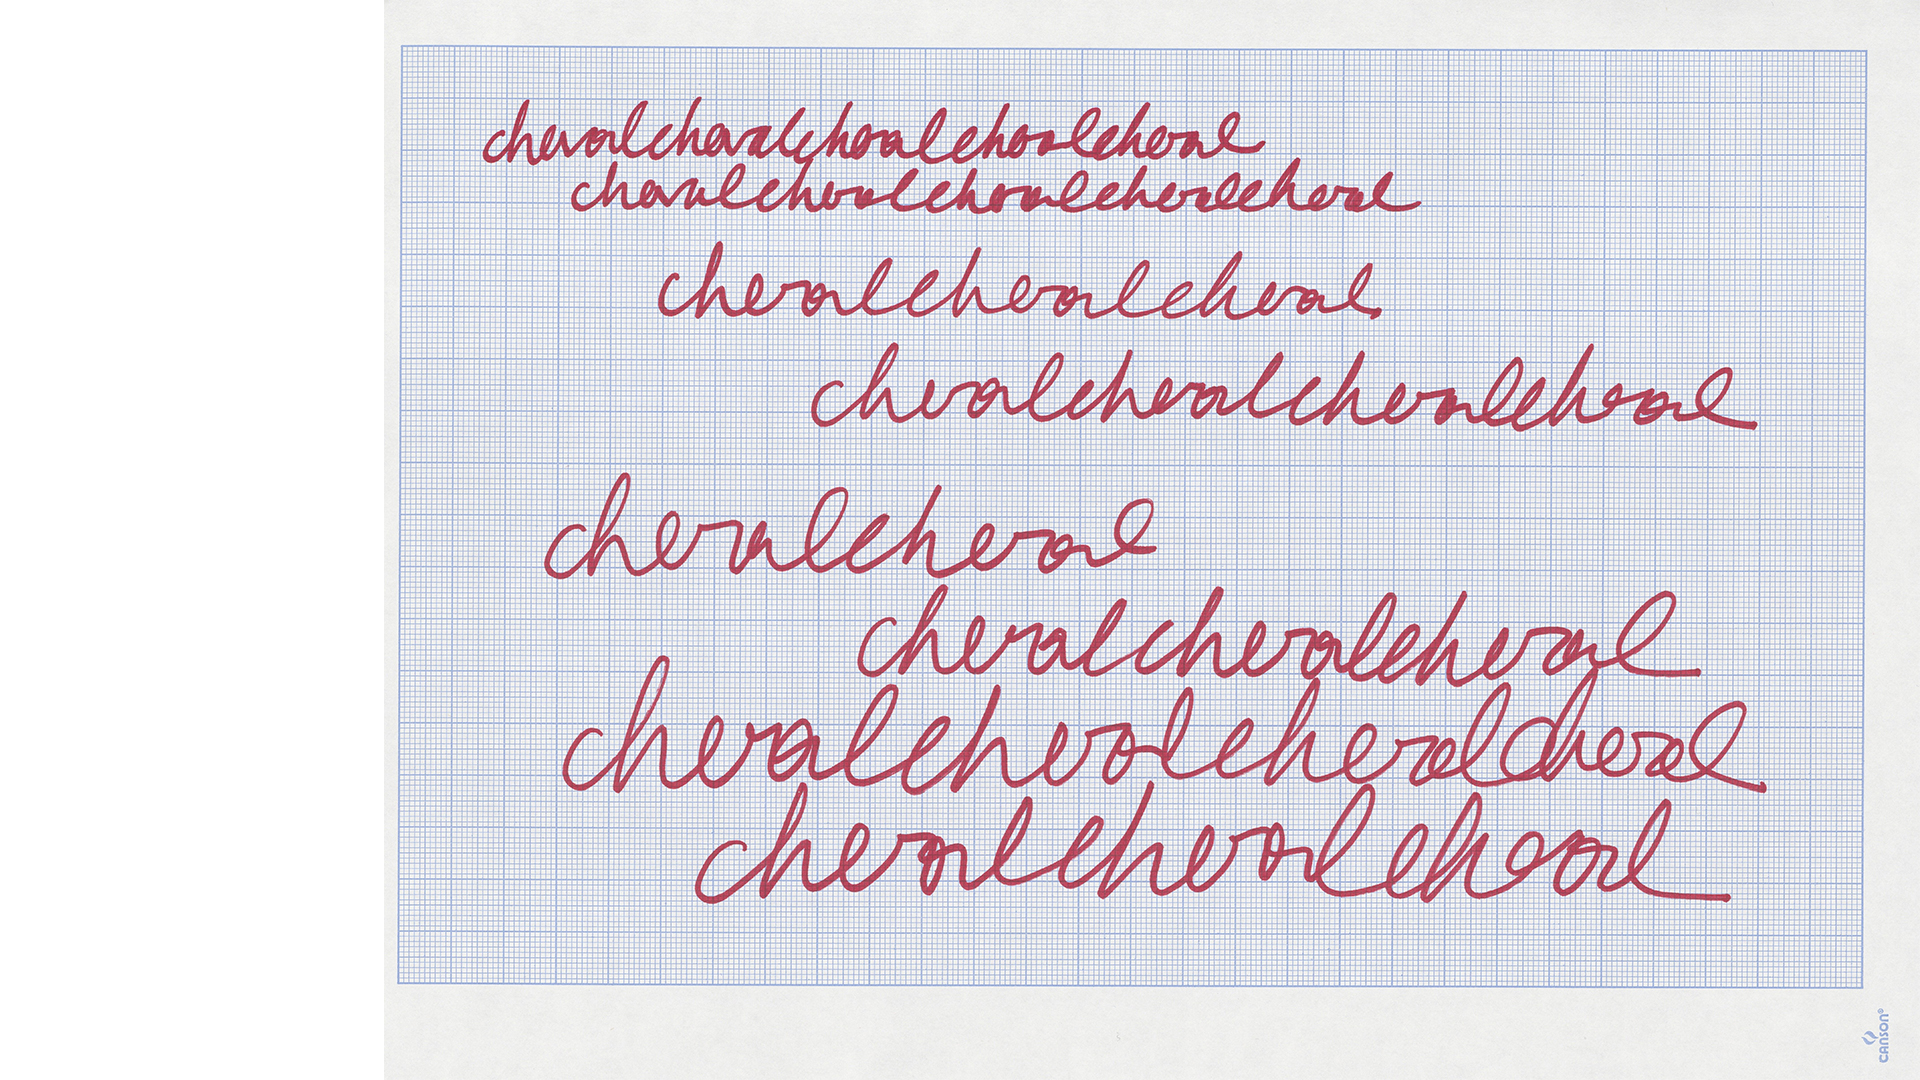 chevalchevalchevalchevalcheval
chevalchevalchevalchevalcheval
chevalchevalcheval
chevalchevalchevalcheval
chevalcheval
chevalchevalcheval
chevalchevalchevalcheval
chevalchevalcheval
CANSON®